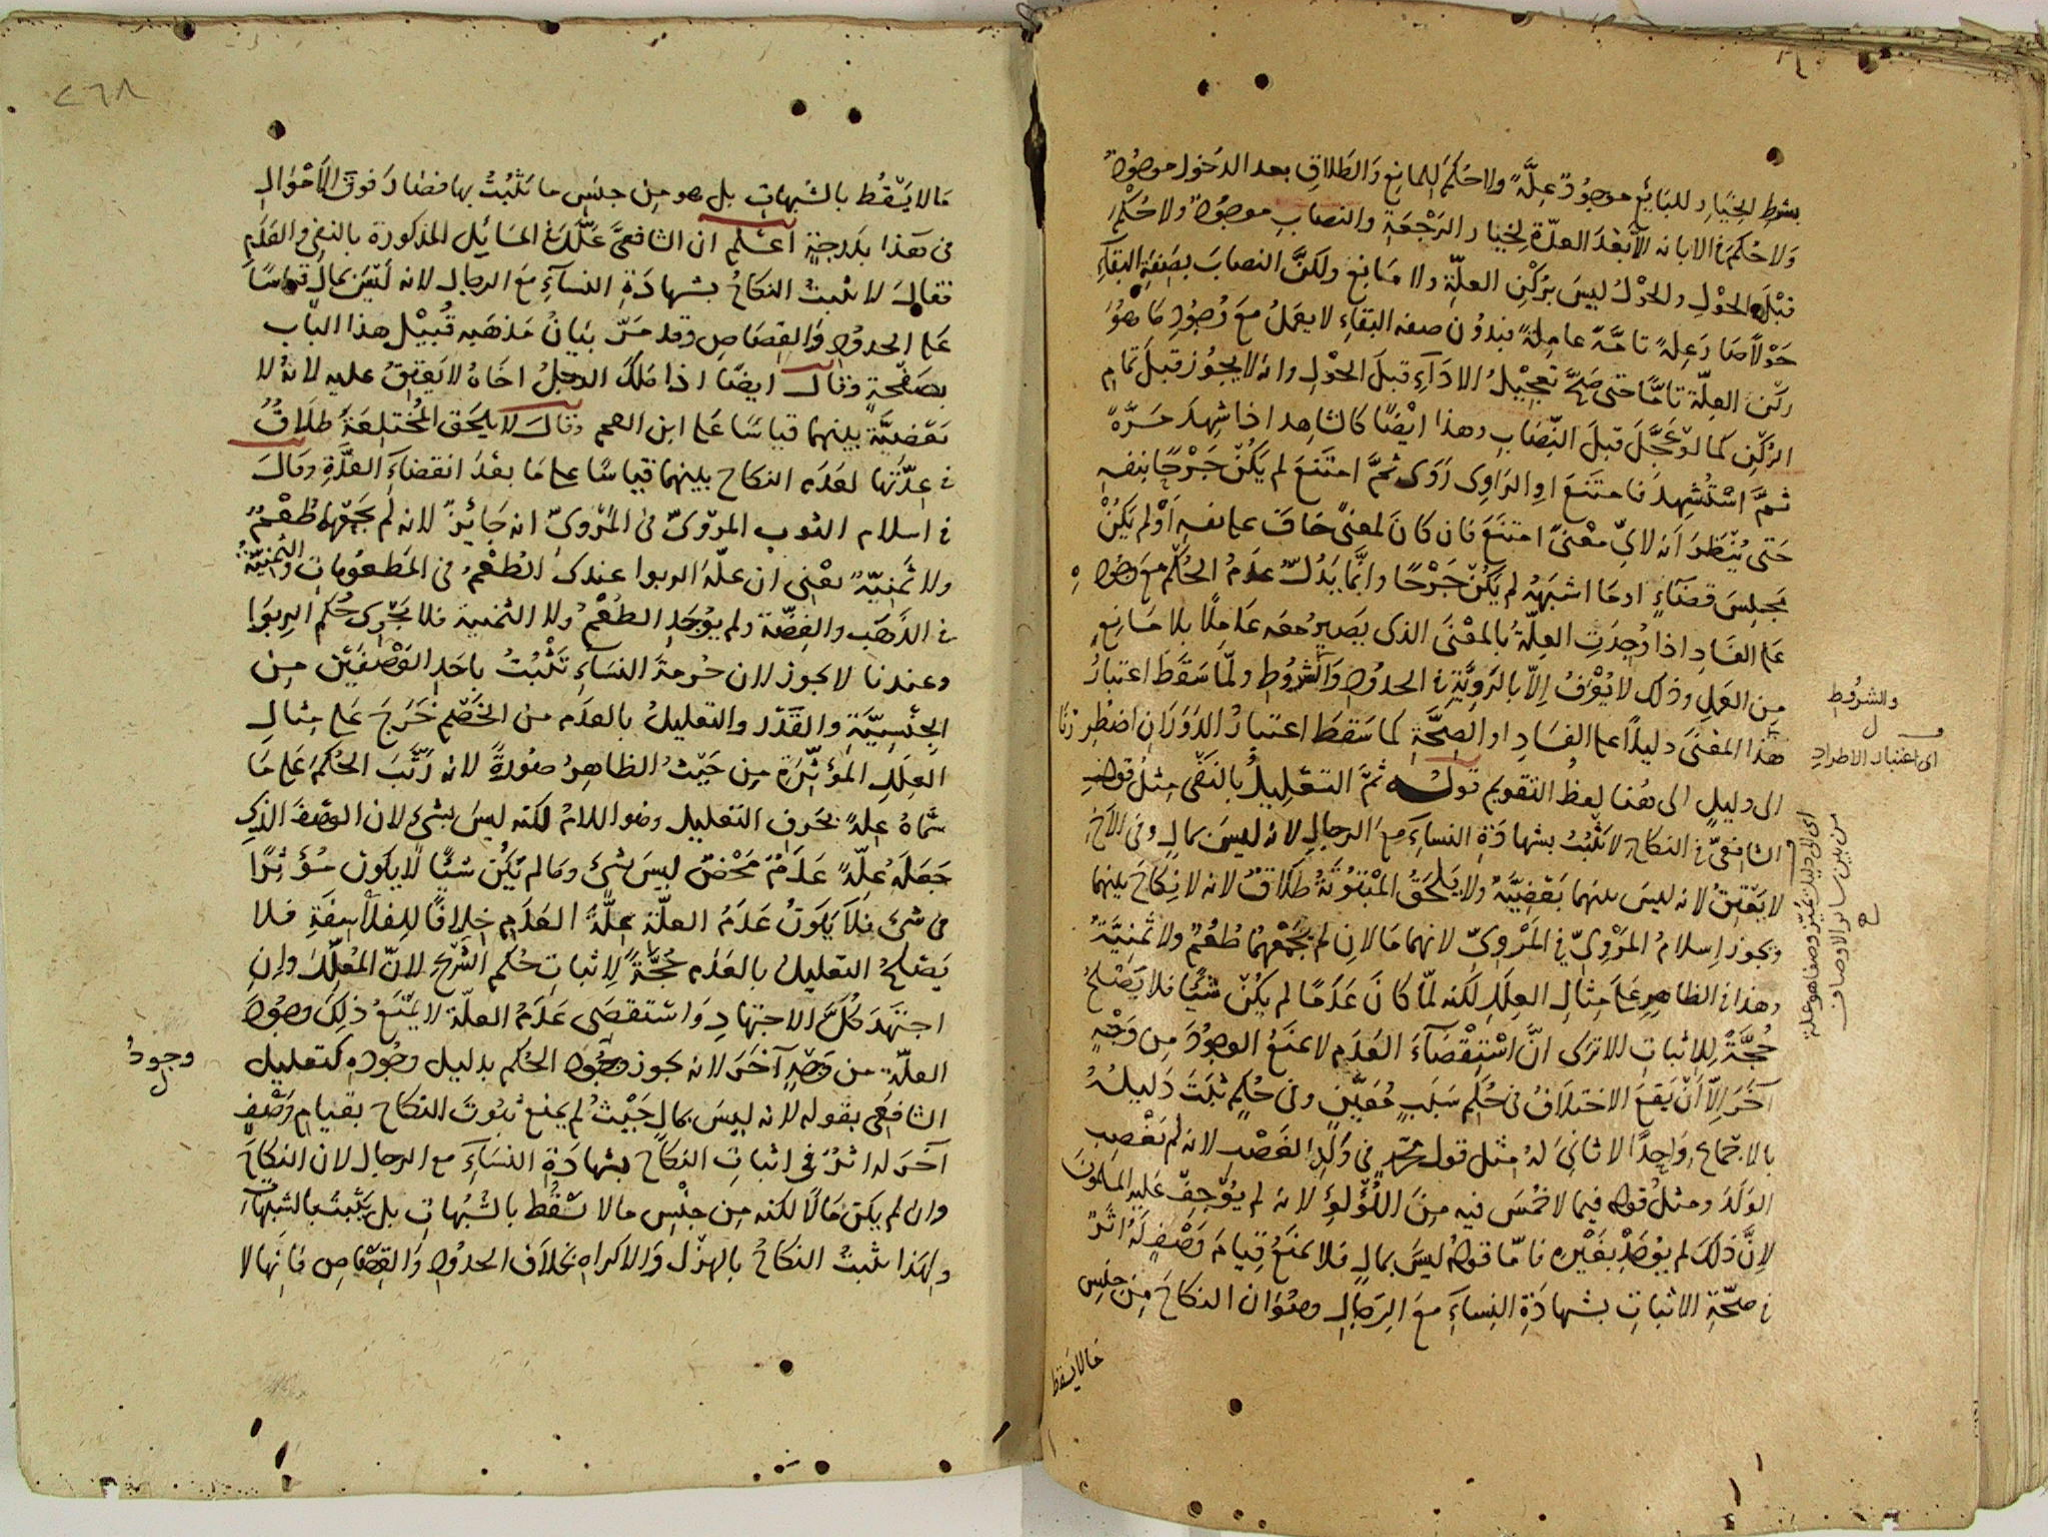 بشرط الخيار للبايع موجود علة ولا حكم للمانع والطلاق بعد الدخول موجود
ولا حكم في الابانة الا بعد العدة لخيار الرجعة والنصاب موجود ولا حكم
قبل الحول والحول ليس بركن العلة ولا مانع ولكن النصاب بصفة البقاء
حولا صار علة تامة عاملة فبدون صفة البقاء لا يعمل مع وجود ما هو
ركن العلة تاما حتى صح تعجيل الاداء قبل الحول وانه لا يجوز قبل تمام
الركن كما لو عجل قبل النصاب وهذا ايضا كالشاهد اذا شهد مرة
ثم استشهد فامتنع او الراوى روى ثم امتنع لم يكن جرحا بنفسه
حتى ينظر انه لاى معنى امتنع فان كان لمعنى خاف على نفسه او لم يكن
مجلس قضاء او ما اشبهه لم يكن جرحا وانما يدل عدم الحكم مع وجود ه
على الفساد اذا وجدت العلة بالمعنى الذى يصير معه عاملا بلا مانع
من العمل وذلك لا يعرف الا بالروية في الحدود والشروط ولما سقط اعتبار
هذا المعنى دليلا على الفساد او الصحة كما سقط اعتبار الدوران اضطررنا
الى دليل الى هنا لفظ التقويم قوله ثم التعليل بالنفى مثل قول
الشافعى في النكاح لا يثبت بشهادة النساء مع الرجال لانه ليس بمال وفى الاخ
لا يعتق لانه ليس بينهما بعضية ولا يلحق المبتوتة طلاق لانه لا نكاح بينهما
ويجوز اسلام المروى في المروى لانهما مالان لم يجمعهما طعم ولا ثمنية
وهذا في الظاهر على مثال العلل لكنه لما كان عدما لم يكن شيئا فلا يصلح
حجة للاثبات الا ترى ان استقصاء العدم لا يمنع الوجود من وجه
آخر الا ان يقع الاختلاف في حكم سبب معين وفى حكم ثبت دليله
بالاجماع واحدا لا ثانى له مثل قول محمد في ولد الغصب لانه لم يغصب
الولد ومثل قوله فيما لا خمس فيه من اللؤلؤ لانه لم يوجف عليه المسلمون
لان ذلك لم يوجد بغيره فاما قوله ليس بمال فلا يمنع قيام وصف له اثر
في صحة الاثبات بشهادة النساء مع الرجال وهو ان النكاح من جنس
ما لا يسقط
والشروط
ل
اى اعتبار الاطراد
اى الى دليل يميز وصفا هو علة
من بين سائر الاوصاف
٢٦٨
ما لا يسقط بالشبهات بل هو من جنس ما يثبت بها فصار فوق الاموال
في هذا بدرجة اعلم ان الشافعى علل في المسائل المذكورة بالنفى والعدم
فقال لا يثبت النكاح بشهادة النساء مع الرجال لانه ليس بمال قياسا
على الحدود والقصاص وقد مر بيان مذهبه قبيل هذا الباب
بصفحة وقال ايضا اذا ملك الرجل اخاه لا يعتق عليه لانه لا
بعضية بينهما قياسا على ابن العم وقال لا يلحق المختلعة طلاق
في عدتها لعدم النكاح بينهما قياسا على ما بعد انقضاء العدة وقال
في اسلام الثوب المروى في المروى انه جائز لانه لم يجمعهما طعم
ولا ثمنية يعنى ان علة الربوا عندك الطعم في المطعومات والثمنية
في الذهب والفضة ولم يوجد الطعم ولا الثمنية فلا يجرى حكم الربوا
وعندنا لا يجوز لان حرمة النساء تثبت باحد الوصفين من
الجنسية والقدر والتعليل بالعدم من الخصم خرج على مثال
العلل المؤثرة من حيث الظاهر صورة لانه رتب الحكم على ما
سماه علة بحرف التعليل وهو اللام لكنه ليس بشئ لان الوصف الذى
جعله علة عدم محض ليس بشئ وما لم يكن شيئا لا يكون مؤثرا
في شئ فلا يكون عدم العلة علة العدم خلافا للفلاسفة فلا
يصلح التعليل بالعدم حجة لاثبات حكم الشرع لان المعلل وان
اجتهد كل الاجتهاد واستقصى عدم العلة لا يمنع ذلك وجود
العلة من وجه آخر لانه يجوز وجود الحكم بدليل وجوده كتعليل
وجود
ل
الشافعى بقوله لانه ليس بمال حيث لم يمنع ثبوت النكاح بقيام وصف
آخر له اثر في اثبات النكاح بشهادة النساء مع الرجال لان النكاح
وان لم يكن مالا لكنه من جنس ما لا يسقط بالشبهات بل يثبت بالشبهات
ولهذا يثبت النكاح بالهزل والاكراه بخلاف الحدود والقصاص فانها لا